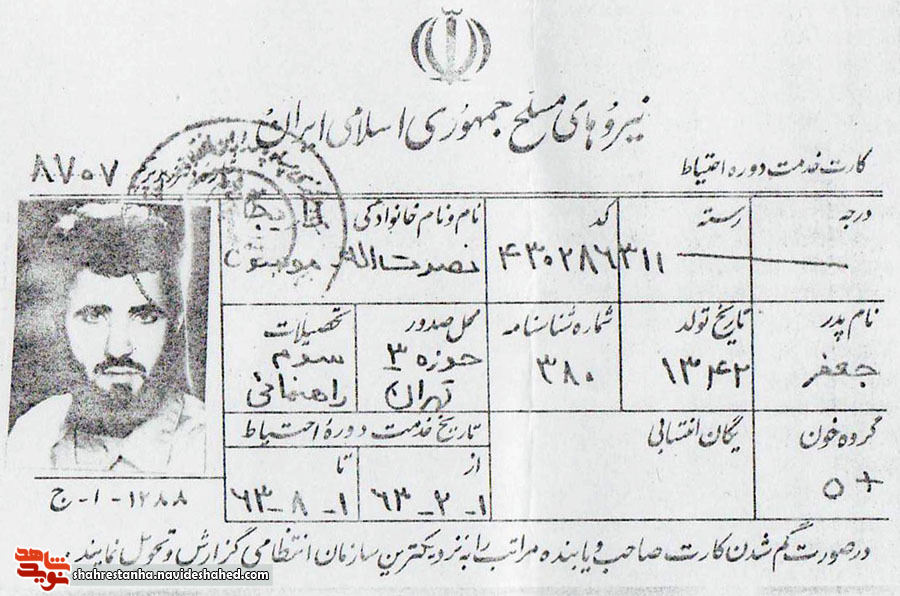 نیروهای مسلح جمهوری اسلامی ایران
کارت خدمت دوره احتیاط
۸۷۰۷
درجه
رسته
کد
۴۳۰۲۸۶۳۱۱
نام و نام خانوادگی
نصرت‌اله موسوی
نام پدر
جعفر
تاریخ تولد
۱۳۴۲
شماره شناسنامه
۳۸۰
محل صدور
حوزه ۳
تهران
تحصیلات
سوم
راهنمائی
گروه خون
O +
یگان انتسابی
تاریخ خدمت دوره احتیاط
از
۱-۲-۶۳
تا
۱-۸-۶۳
۱۲۸۸-۱-ج
در صورت گم شدن کارت صاحب و یابنده مراتب را به نزدیکترین سازمان انتظامی گزارش و تحویل نمایند.
نوید شاهد
shahrestanha.navideshahed.com